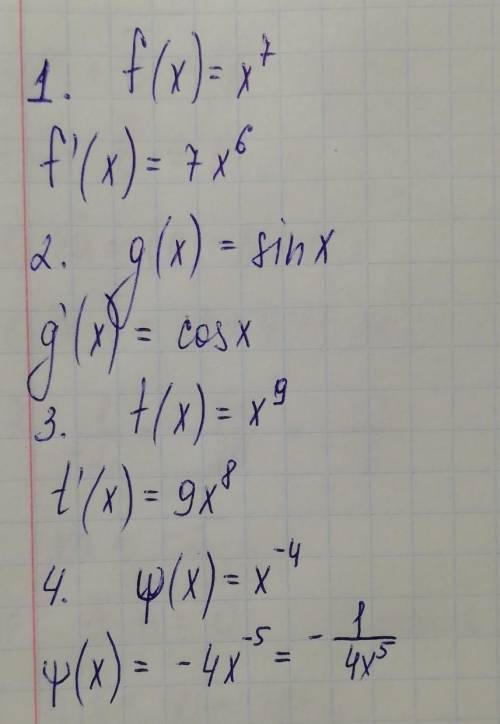 1. f(x) = x⁷
f'(x) = 7x⁶
2. g(x) = sin x
g'(x) = cos x
3. t(x) = x⁹
t'(x) = 9x⁸
4. ψ(x) = x⁻⁴
ψ(x) = -4x⁻⁵ = -1/4x⁵